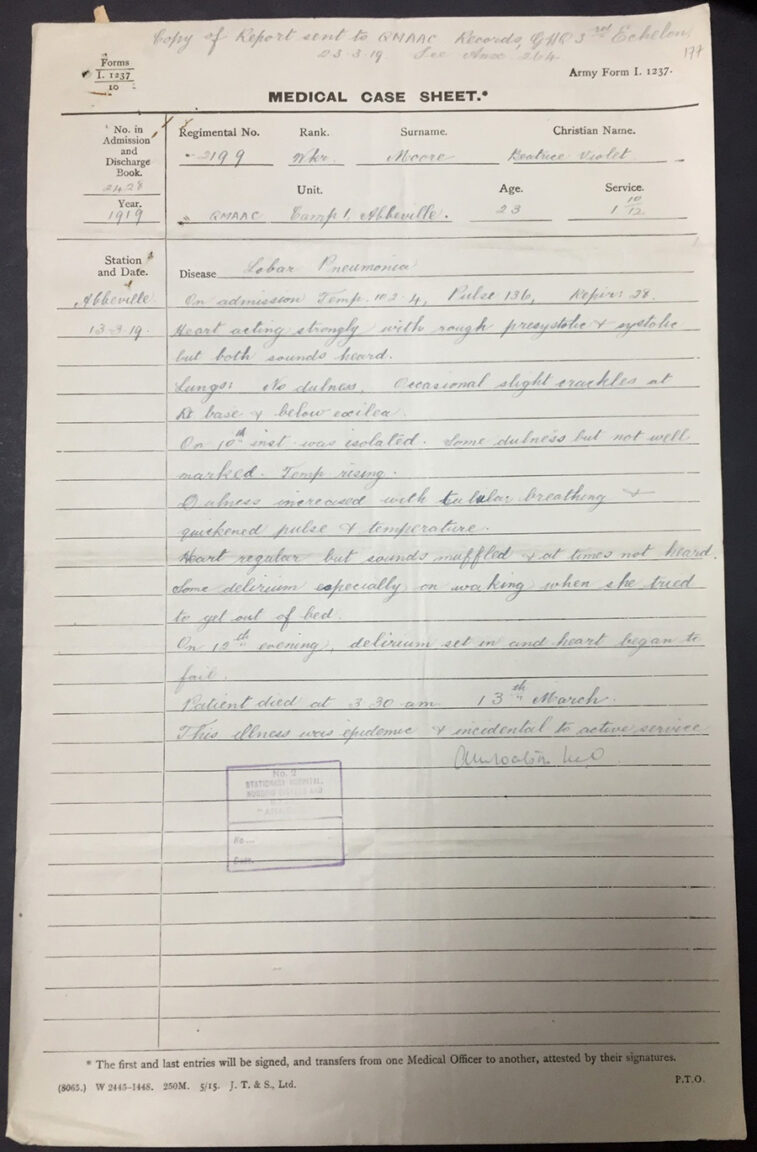 Copy of Report sent to QMAAC Records, GHQ 3rd Echelon,
23-3-19. See Anse 264
177
Forms
I. 1237
10
Army Form I. 1237.
MEDICAL CASE SHEET.*
No. in Admission and Discharge Book.
2428
Year.
1919
Regimental No. Rank. Surname. Christian Name.
2199 Wkr. Moore Beatrice Violet.
Unit. Age. Service.
QMAAC Camp 1, Abbeville. 23 1 10/12
Station and Date.
Disease Lobar Pneumonia
Abbeville On admission Temp. 102.4, Pulse 136, Respir: 28.
13-3-19. Heart acting strongly with rough presystolic & systolic
but both sounds heard.
Lungs: No dulness, Occasional slight crackles at
Rt base & below axilea.
On 10th inst was isolated. Some dulness but not well
marked. Temp rising.
Dulness increased with tubular breathing &
quickened pulse & temperature.
Heart regular but sounds muffled & at times not heard.
Some delirium especially on waking when she tried
to get out of bed.
On 12th evening, delirium set in and heart began to
fail.
Patient died at 3-30 am 13th March.
This illness was epidemic & incidental to active service
No. 2
STATIONARY HOSPITAL,
No....
Date.
* The first and last entries will be signed, and transfers from one Medical Officer to another, attested by their signatures.
(8065.) W 2445-1448. 250M. 5/15. J. T. & S., Ltd. P.T.O.